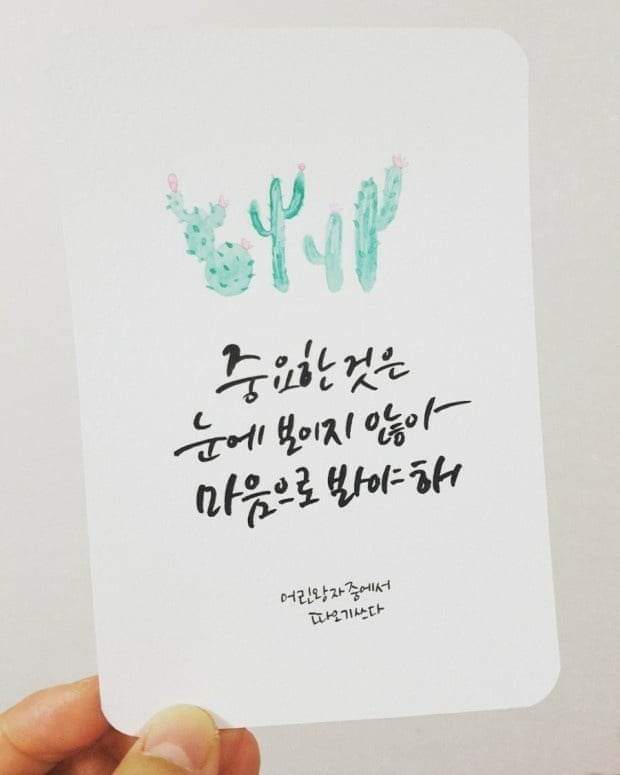 중요한 것은
눈에 보이지 않아
마음으로 봐야 해
어린왕자 중에서
따오기쓰다